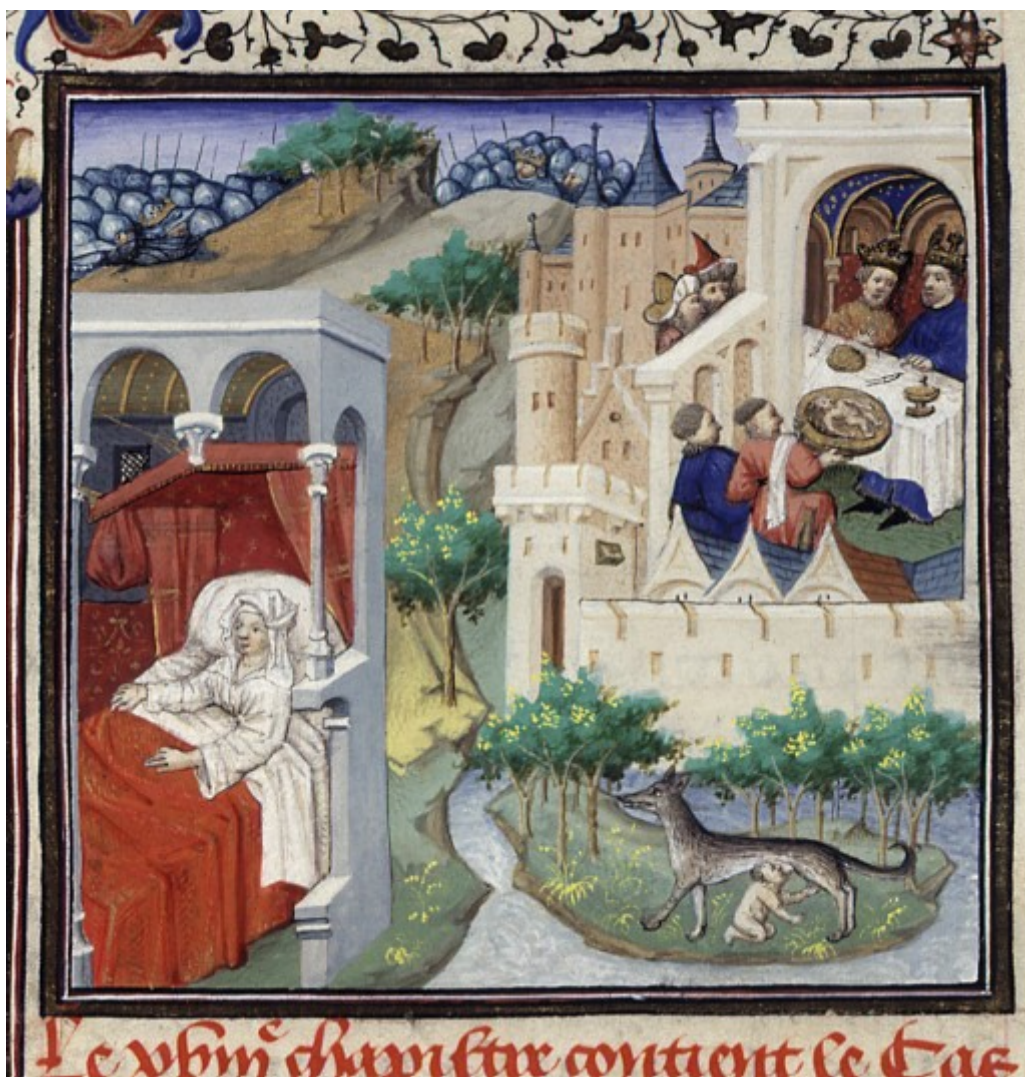 Le xviiiᵉ chapittre contient le Cas